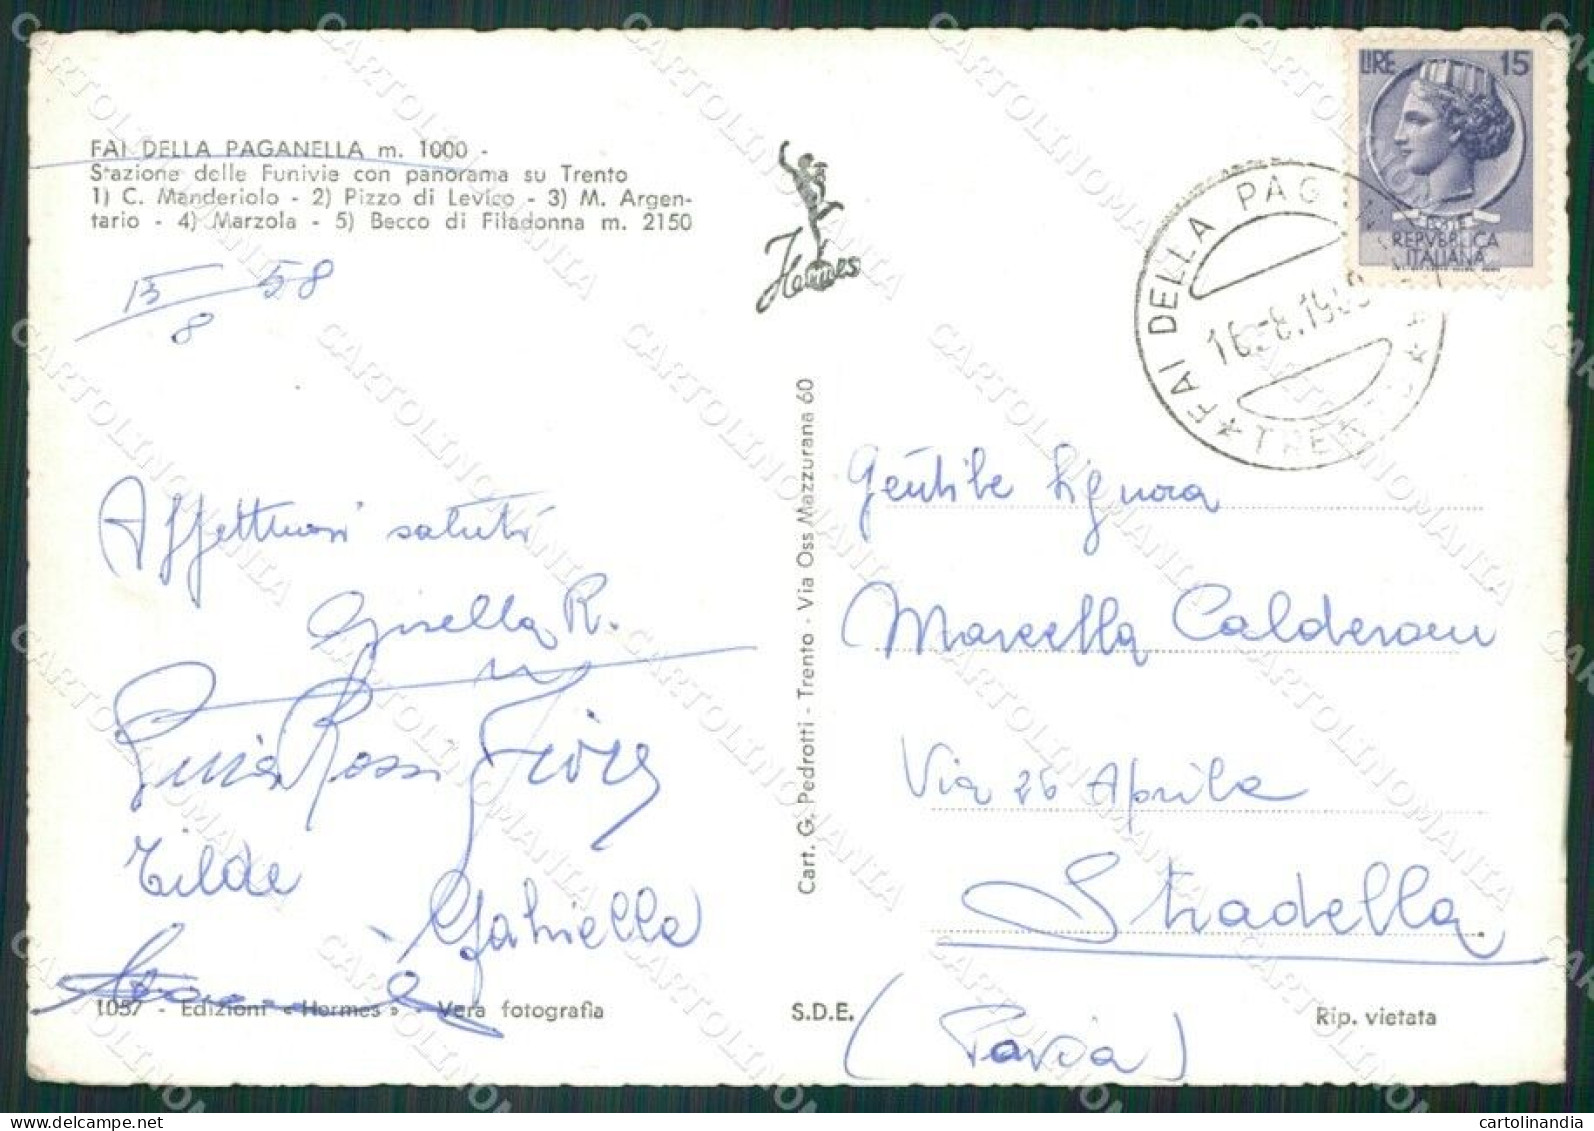 FAI DELLA PAGANELLA m. 1000 -
Stazione delle Funivie con panorama su Trento
1) C. Manderiolo - 2) Pizzo di Levico - 3) M. Argen-
tario - 4) Marzola - 5) Becco di Filadonna m. 2150
15/8 58
Affettuosi saluti
Gisella R.
Rossi
Tilde
Gabriella
1057 - Edizioni « Hermes » - Vera fotografia
Hermes
Cart. G. Pedrotti - Trento - Via Oss Mazzurana 60
S.D.E.
LIRE 15
POSTE
REPVBBLICA
ITALIANA
FAI DELLA PAG
TRENTO
16.-8.19
Gentile Signora
Marcella Calderoni
Via 26 Aprile
Stradella
(Pavia)
Rip. vietata
CARTOLINOMANIA
cartolinandia